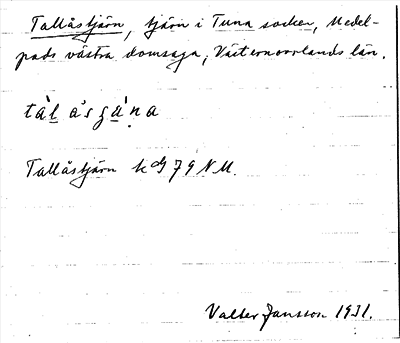 Tallåstjärn, tjärn i Tuna socken, Medel-
pads västra domsaga, Västernorrlands län.
Tallåstjärn k 79 NV.
Valter Jansson 1931.